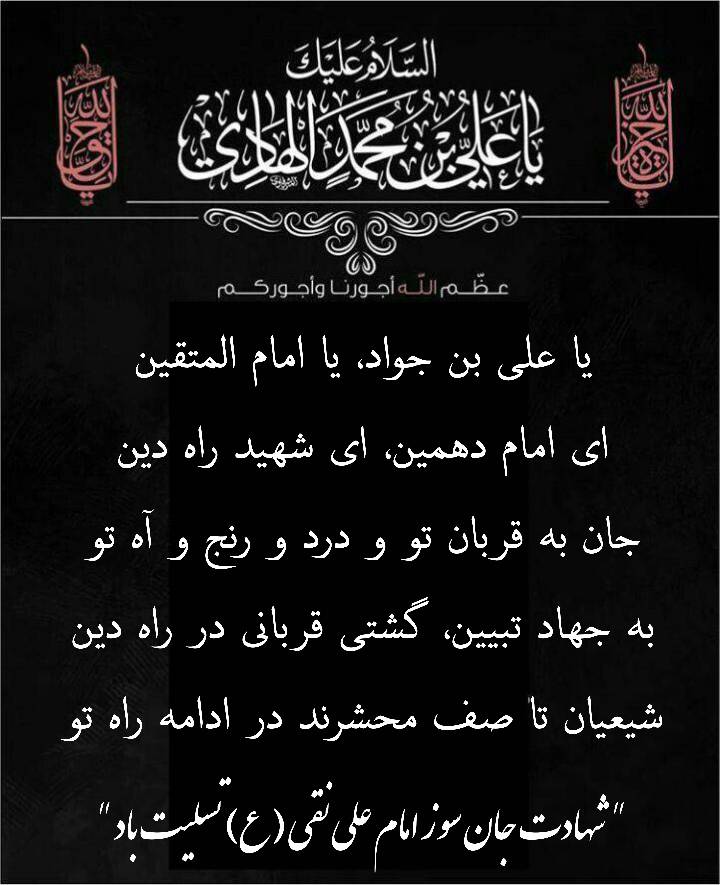 السَّلَامُ عَلَيْكَ
يَا عَلِيُّ بْنُ مُحَمَّدٍ الْهَادِي
عظّم الله أجورنا وأجوركم
یا علی بن جواد، یا امام المتقین
ای امام دهمین، ای شهید راه دین
جان به قربان تو و درد و رنج و آه تو
به جهاد تبیین، گشتی قربانی در راه دین
شیعیان تا صف محشرند در ادامه راه تو
"شهادت جان سوز امام علی نقی (ع) تسلیت باد"